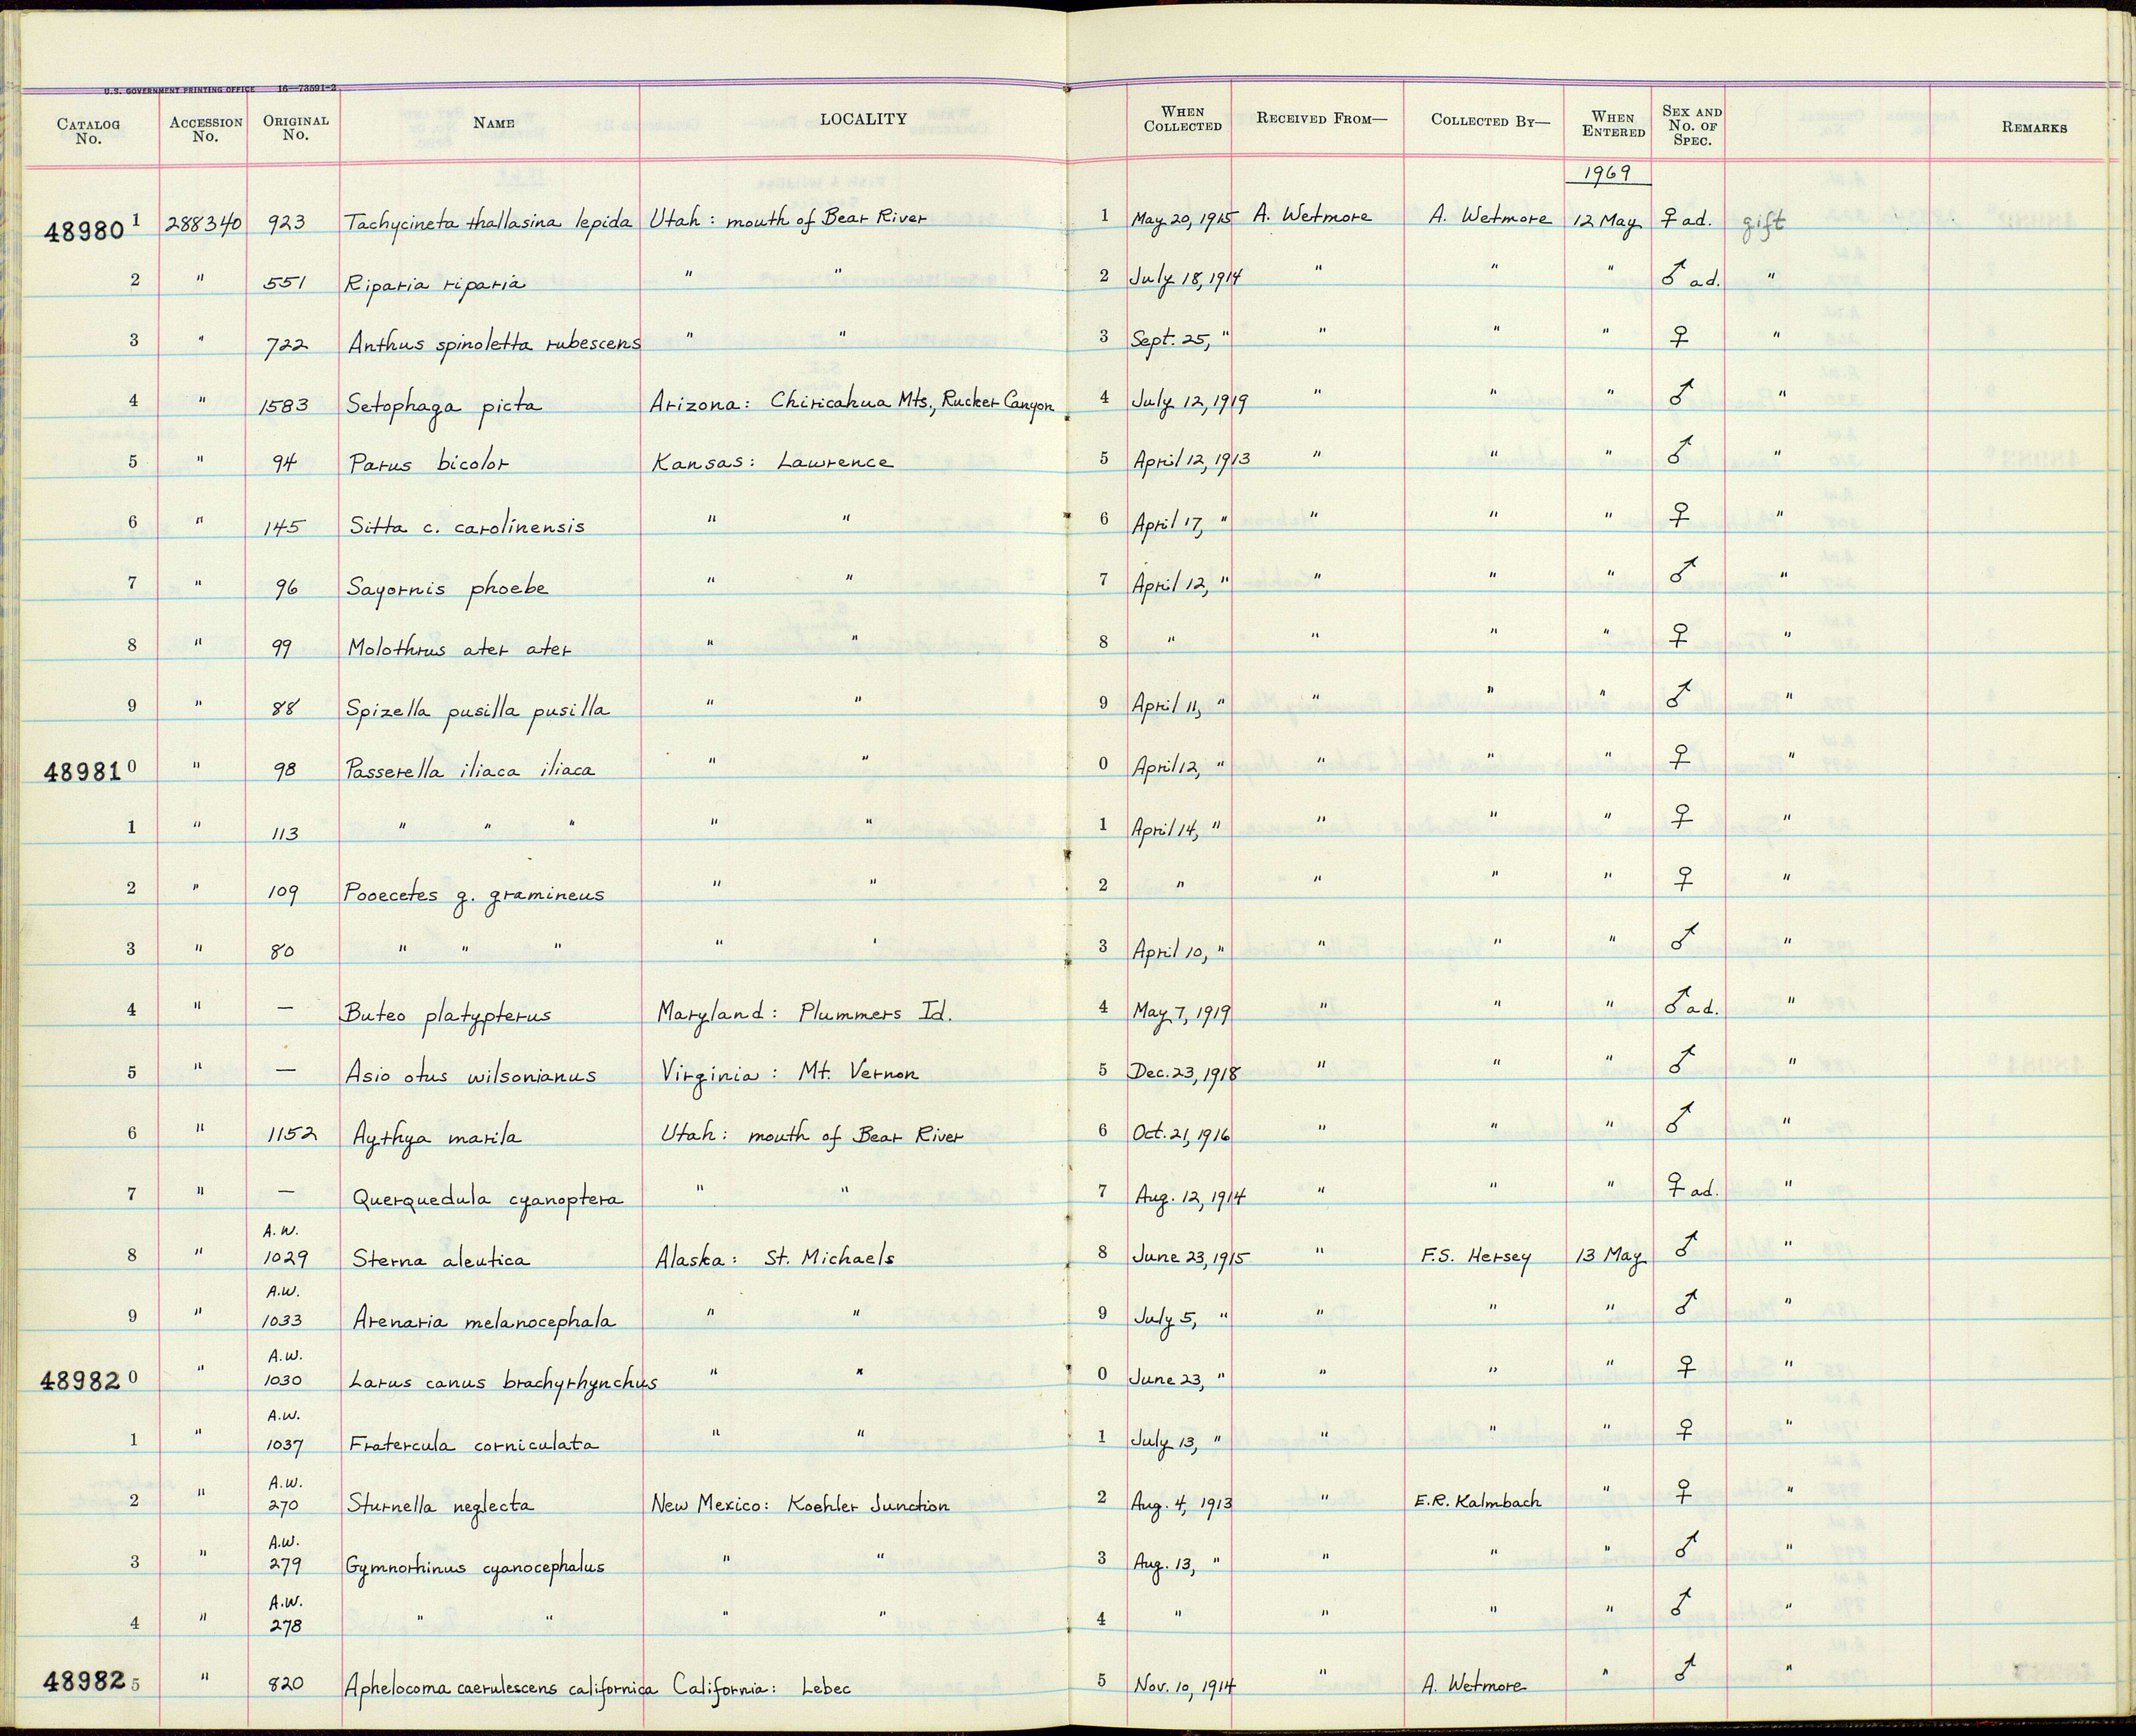 U.S. GOVERNMENT PRINTING OFFICE 16—73591-2
CATALOG No. ACCESSION No. ORIGINAL No. NAME LOCALITY WHEN COLLECTED RECEIVED FROM— COLLECTED BY— WHEN ENTERED SEX AND No. OF SPEC. REMARKS
1969
48980 1 288340 923 Tachycineta thallasina lepida Utah: mouth of Bear River 1 May 20, 1915 A. Wetmore A. Wetmore 12 May ♀ ad. gift
2 " 551 Riparia riparia " " 2 July 18, 1914 " " " ♂ ad. "
3 " 722 Anthus spinoletta rubescens " " 3 Sept. 25, " " " " ♀ "
4 " 1583 Setophaga picta Arizona: Chiricahua Mts., Rucker Canyon 4 July 12, 1919 " " " ♂ "
5 " 94 Parus bicolor Kansas: Lawrence 5 April 12, 1913 " " " ♂ "
6 " 145 Sitta c. carolinensis " " 6 April 17, " " " " ♀ "
7 " 96 Sayornis phoebe " " 7 April 12, " " " " ♂ "
8 " 99 Molothrus ater ater " " 8 " " " " ♀ "
9 " 88 Spizella pusilla pusilla " " 9 April 11, " " " " ♂ "
48981 0 " 98 Passerella iliaca iliaca " " 0 April 12, " " " " ♀ "
1 " 113 " " " " " 1 April 14, " " " " ♀ "
2 " 109 Pooecetes g. gramineus " " 2 " " " " ♀ "
3 " 80 " " " " " 3 April 10, " " " " ♂ "
4 " — Buteo platypterus Maryland: Plummers Id. 4 May 7, 1919 " " " ♂ ad. "
5 " — Asio otus wilsonianus Virginia: Mt. Vernon 5 Dec. 23, 1918 " " " ♂ "
6 " 1152 Aythya marila Utah: mouth of Bear River 6 Oct. 21, 1916 " " " ♂ "
7 " — Querquedula cyanoptera " " 7 Aug. 12, 1914 " " " ♀ ad. "
A.W.
8 " 1029 Sterna aleutica Alaska: St. Michaels 8 June 23, 1915 " F.S. Hersey 13 May ♂ "
A.W.
9 " 1033 Arenaria melanocephala " " 9 July 5, " " " " ♂ "
A.W.
48982 0 " 1030 Larus canus brachyrhynchus " " 0 June 23, " " " " ♀ "
A.W.
1 " 1037 Fratercula corniculata " " 1 July 13, " " " " ♀ "
A.W.
2 " 270 Sturnella neglecta New Mexico: Koehler Junction 2 Aug. 4, 1913 " E.R. Kalmbach " ♀ "
A.W.
3 " 279 Gymnorhinus cyanocephalus " " 3 Aug. 13, " " " " ♂ "
A.W.
4 " 278 " " " " 4 " " " " ♂ "
48982 5 " 820 Aphelocoma caerulescens californica California: Lebec 5 Nov. 10, 1914 " A. Wetmore " ♂ "